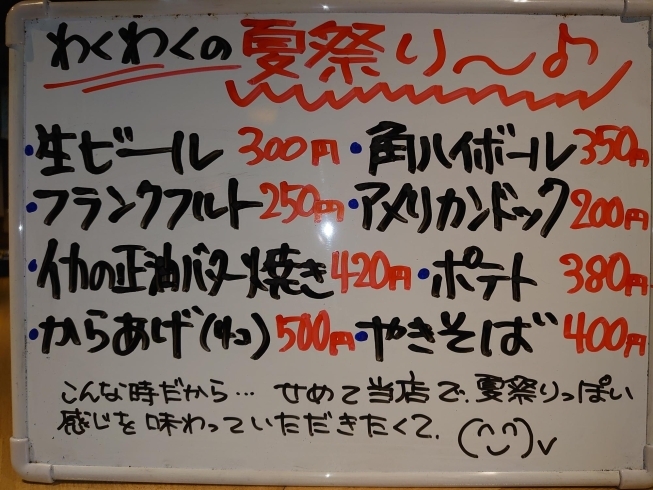 わくわくの夏祭り～♪
・生ビール 300円 ・角ハイボール 350円
・フランクフルト 250円 ・アメリカンドック 200円
・イカの正油バター焼き 420円 ・ポテト 380円
・からあげ(4コ) 500円 ・やきそば 400円
こんな時だから… せめて当店で、夏祭りっぽい
感じを味わっていただきたくて、(^◡^)v